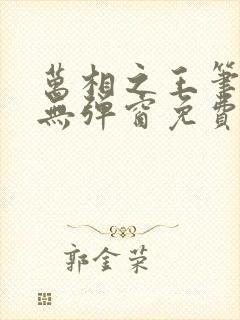 萬相之王筆
無彈窗免費
郭金荣